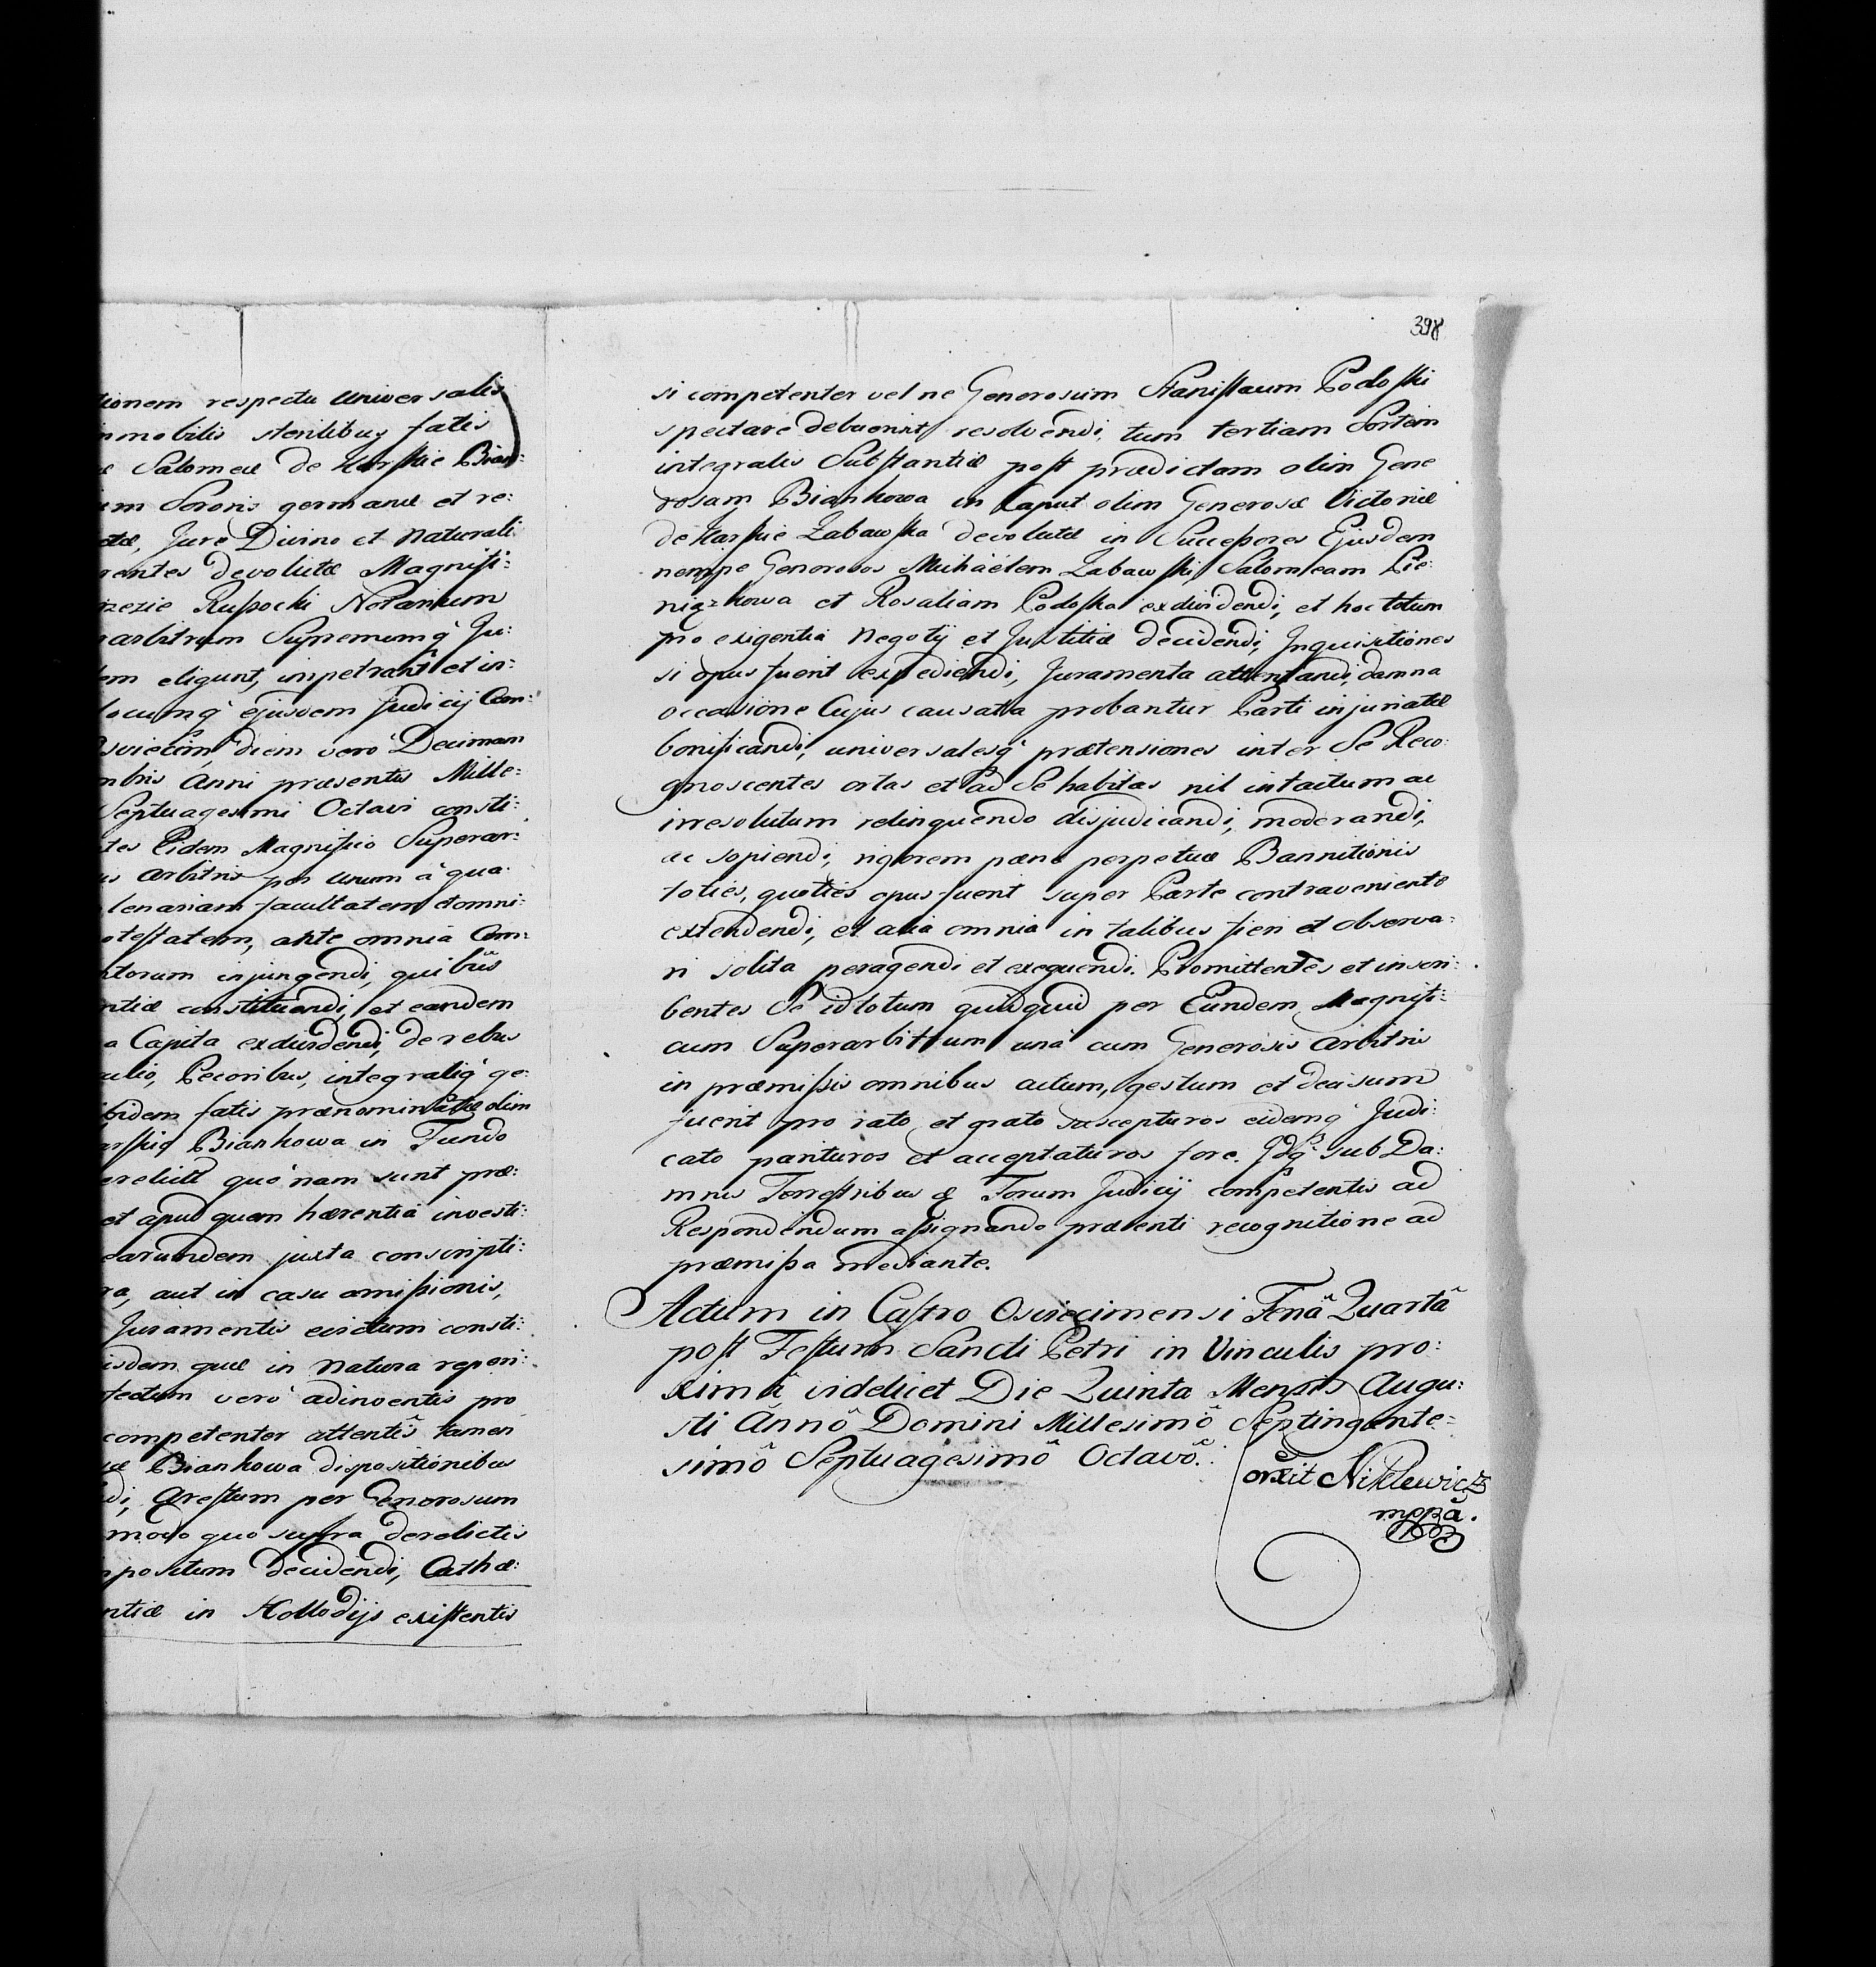 tionem respectu universalis
mmobilis sterilibus fatis
æ Salomeæ de Karskie Bian:
um Sororis germanæ et re:
ctæ, Jure Divino et Naturali
rentes devolutæ Magnifi:
Russocki Notarium
arbitrum Supremumq Ju:
em eligunt, impetrant et in:
locumq ejusdem Judicij Con:
Oswiecim, diem vero Decimam
mbris Anni præsentis Mille:
Septuagesimi Octavi consti:
tes Eidem Magnifico Superar:
is Arbitris per unum a qua:
lenariam facultatem etomni:
otestatem, ante omnia Com:
ntorum injungendi, quibus
ntiæ constituendi, et eandem
a Capita exdividendi, de rebus
Pecoribus, integraliq ge:
ibidem fatis prænominatæ olim
arskie Biankowa in Fundo
erelicta quonam sunt præ:
et apud quem hærentia investi:
earundem juxta conscripti:
ra, aut in casu amissionis,
Juramentis evictum consti:
isdem quæ in natura reperi:
tectum vero adinventis pro
competenter attentis tamen
æ Biankowa dispositionibus
di, Arestum per Generosum
modo quo supra derelictis
positum decidendi, Cathæ:
ntiæ in Hollodijs existentis
398
si competenter vel ne Generosum Stanislaum Podoski
spectare debuerint, resolvendi, tum tertiam Sortem
integralis Substantiæ post prædictam olim Gene
rosam Biankowa in Caput olim Generosæ Victoriæ
de Karskie Zabawska devolutæ in Successores Ejusdem
nempe Generosos Michaelem Zabawski Salomeam Pie:
niązkowa et Rosaliam Podoska exdividendi, et hoc totum
pro exigentia Negotij et Justitiæ decidendi, Inquisitiones
si opus fuerit expediendi, Juramenta attentandi, damna
occasione Cujus causata probantur Parti injuriatæ
bonificandi, universalesq prætensiones inter Se Reco:
gnoscentes ortas et ad Se habitas nil intactum ac
irresolutum relinquendo disjudicandi, moderandi,
ac sopiendi, rigorem pænæ perpetuæ Bannitionis
toties, quoties opus fuerit super Parte contraveniente
extendendi, et alia omnia in talibus fieri et observa:
ri solita peragendi et exequendi. Promittentes et inscri:
bentes Se id totum quidquid per Eundem Magnifi:
cum Superarbitrum una cum Generosis Arbitris
in præmissis omnibus actum, gestum et decisum
fuerit pro rato et grato suscepturos eidemq Judi:
cato parituros et acceptaturos fore. Idq sub Da:
mnis Terrestribus & Forum Judicij competentis ad
Respondendum assignando præsenti recognitione ad
præmissa mediante.
Actum in Castro Osviecimensi Feriâ Quartâ
post Festum Sancti Petri in Vinculis pro:
ximâ videlicet Die Quinta Mensis Augu:
sti Annô Domini Millesimô Septingente:
simô Septuagesimô Octavô.
Corexit Niklewicz
mppâ.